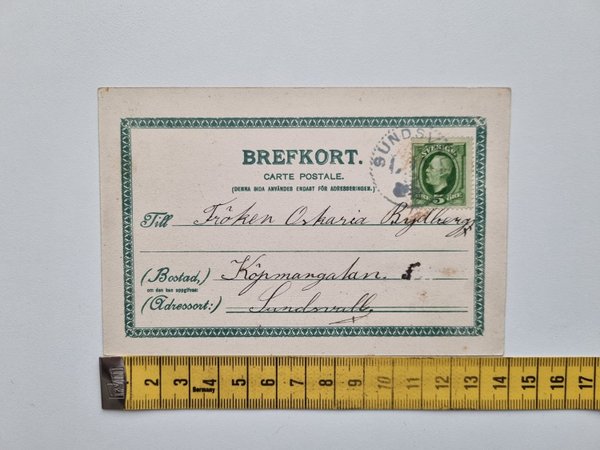 BREFKORT.
CARTE POSTALE.
(DENNA SIDA ANVÄNDES ENDAST FÖR ADRESSERINGEN.)
SUNDSV
SVERIGE
5
Till Fröken Oskaria Rydberg
(Bostad,) Köpmangatan 5
om den kan uppgifvas
(Adressort:) Sundsvall
2 3 4 5 6 7 8 9 10 11 12 13 14 15 16 17
Germany